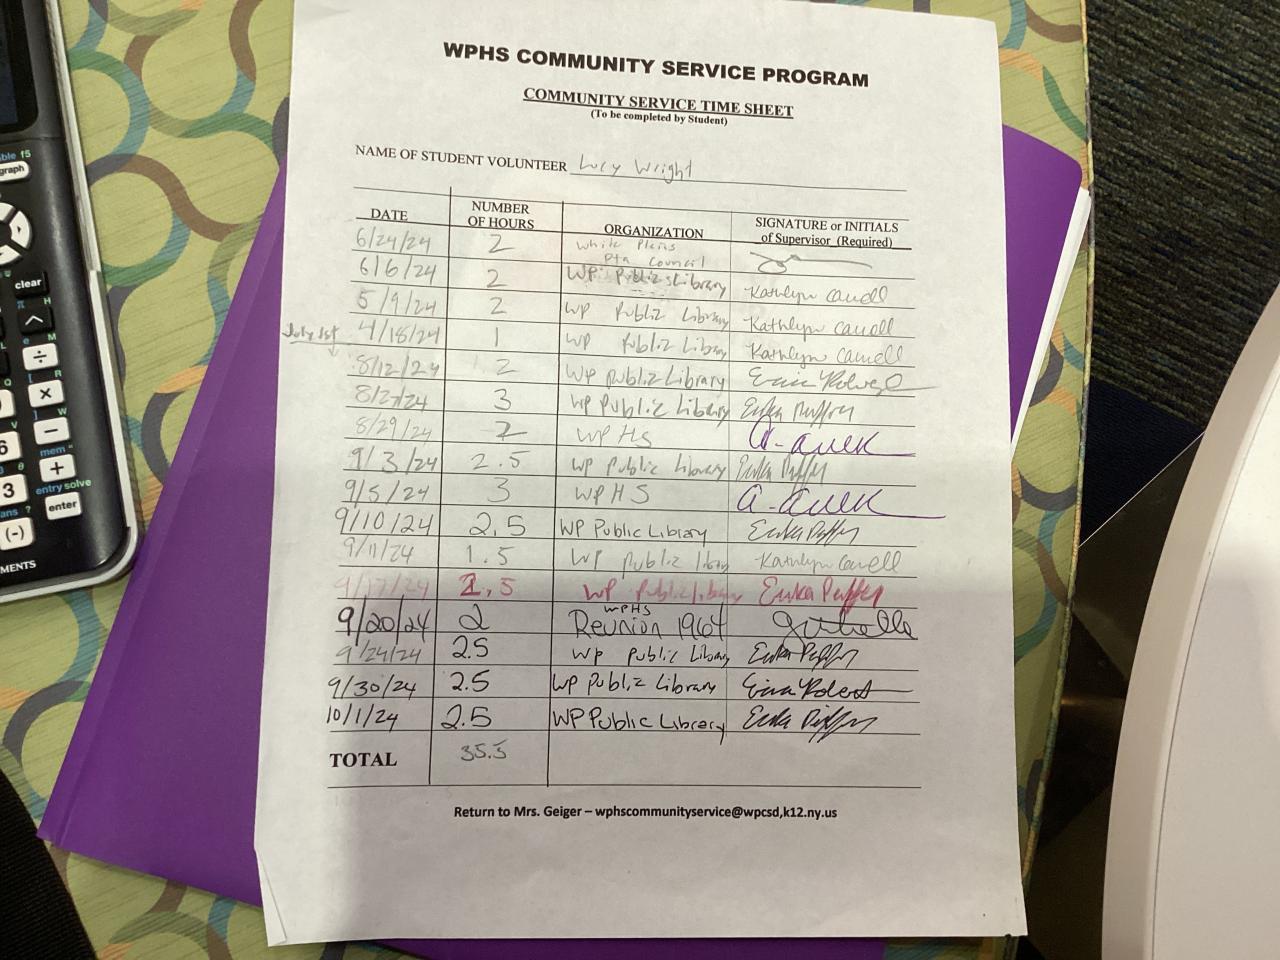 WPHS COMMUNITY SERVICE PROGRAM
COMMUNITY SERVICE TIME SHEET
(To be completed by Student)
NAME OF STUDENT VOLUNTEER Lucy Wright
DATE NUMBER OF HOURS ORGANIZATION SIGNATURE or INITIALS of Supervisor (Required)
6/24/24 2 White Plains Pta Council
6/6/24 2 WP Public Library Kathlyn Carroll
5/9/24 2 WP Public Library Kathlyn Carroll
July 1st 4/18/24 1 WP Public Library Kathlyn Carroll
8/12/24 2 WP Public Library
8/27/24 3 WP Public Library Erika Puffer
8/29/24 2 WPHS
9/3/24 2.5 WP Public Library Erika Puffer
9/5/24 3 WPHS
9/10/24 2.5 WP Public Library Erika Puffer
9/11/24 1.5 WP Public library Kathlyn Carroll
9/17/24 2.5 WP Public Library Erika Puffer
9/20/24 2 WPHS Reunion 1964
9/24/24 2.5 WP Public Library Erika Puffer
9/30/24 2.5 WP Public Library
10/1/24 2.5 WP Public Library Erika Puffer
TOTAL 35.5
Return to Mrs. Geiger – wphscommunityservice@wpcsd,k12.ny.us
graph
clear
mem"
entry solve
enter
ans ?
3
(-)
MENTS